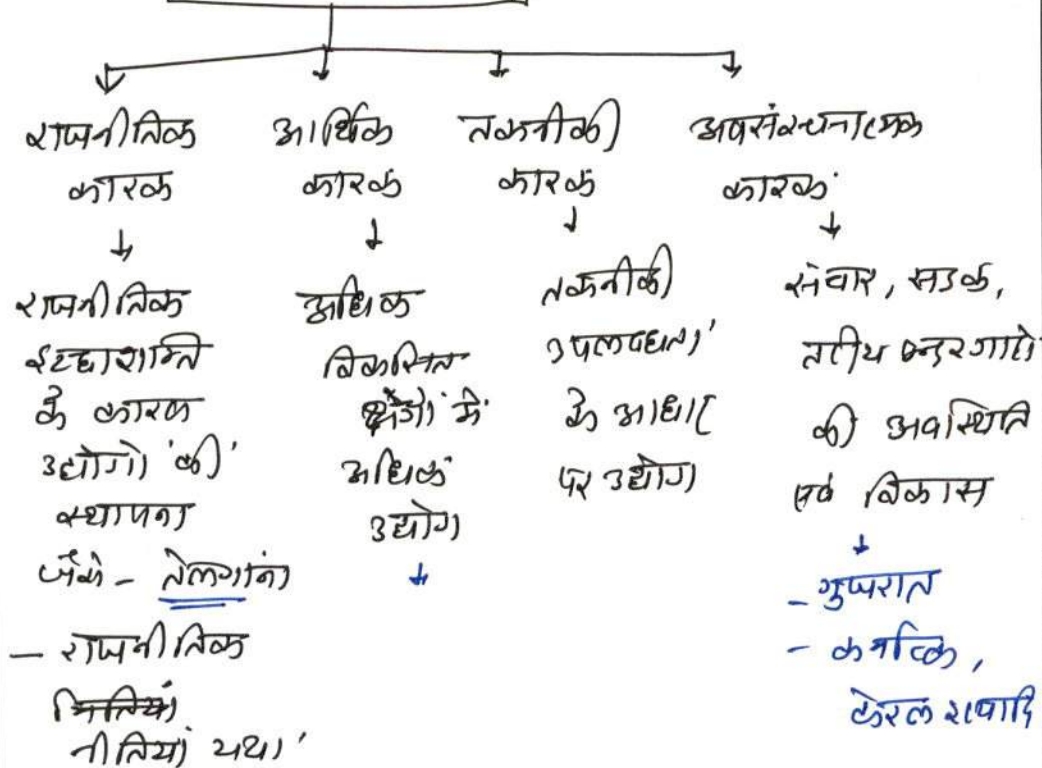 राजनीतिक कारक
↓
राजनीतिक
इच्छाशक्ति
के कारण
उद्योगों की
स्थापना
जैसे - तेलगांना
- राजनीतिक
नीतियां यथा
आर्थिक कारक
↓
अधिक
विकसित
क्षेत्रों में
अधिक
उद्योग
↓
तकनीकी कारक
↓
तकनीकी
उपलब्धता
के आधार
पर उद्योग
अवसंरचनात्मक कारक
↓
संचार, सड़क,
तटीय बन्दरगाहों
की अवस्थिति
एवं विकास
↓
- गुजरात
- कर्नाटक,
केरल इत्यादि